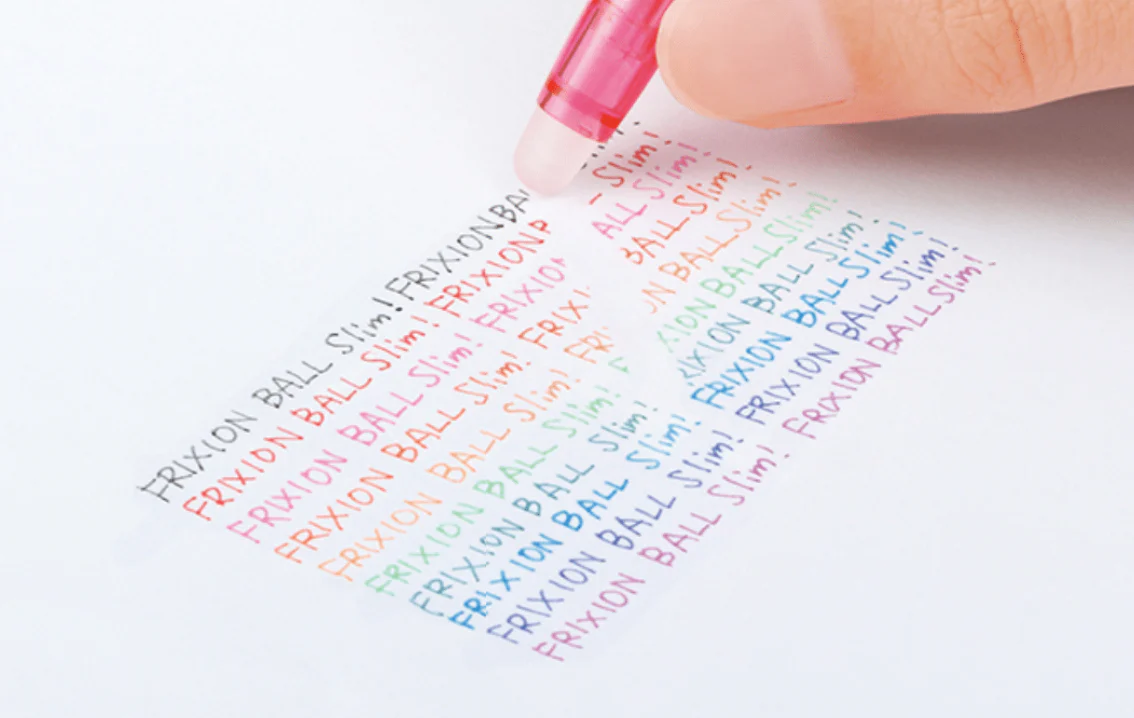 FRIXION BALL Slim! FRIXION BA
FRIXION BALL Slim! FRIXION Slim!
FRIXION BALL Slim! FRIXIO ALL Slim!
FRIXION BALL Slim! FRIX BALL Slim!
FRIXION BALL Slim! FR N BALL Slim!
FRIXION BALL Slim! F XION BALL Slim!
FRIXION BALL Slim! RIXION BALL Slim!
FRIXION BALL Slim! FRIXION BALL Slim!
FRIXION BALL Slim! FRIXION BALL Slim!
FRIXION BALL Slim! FRIXION BALL Slim!